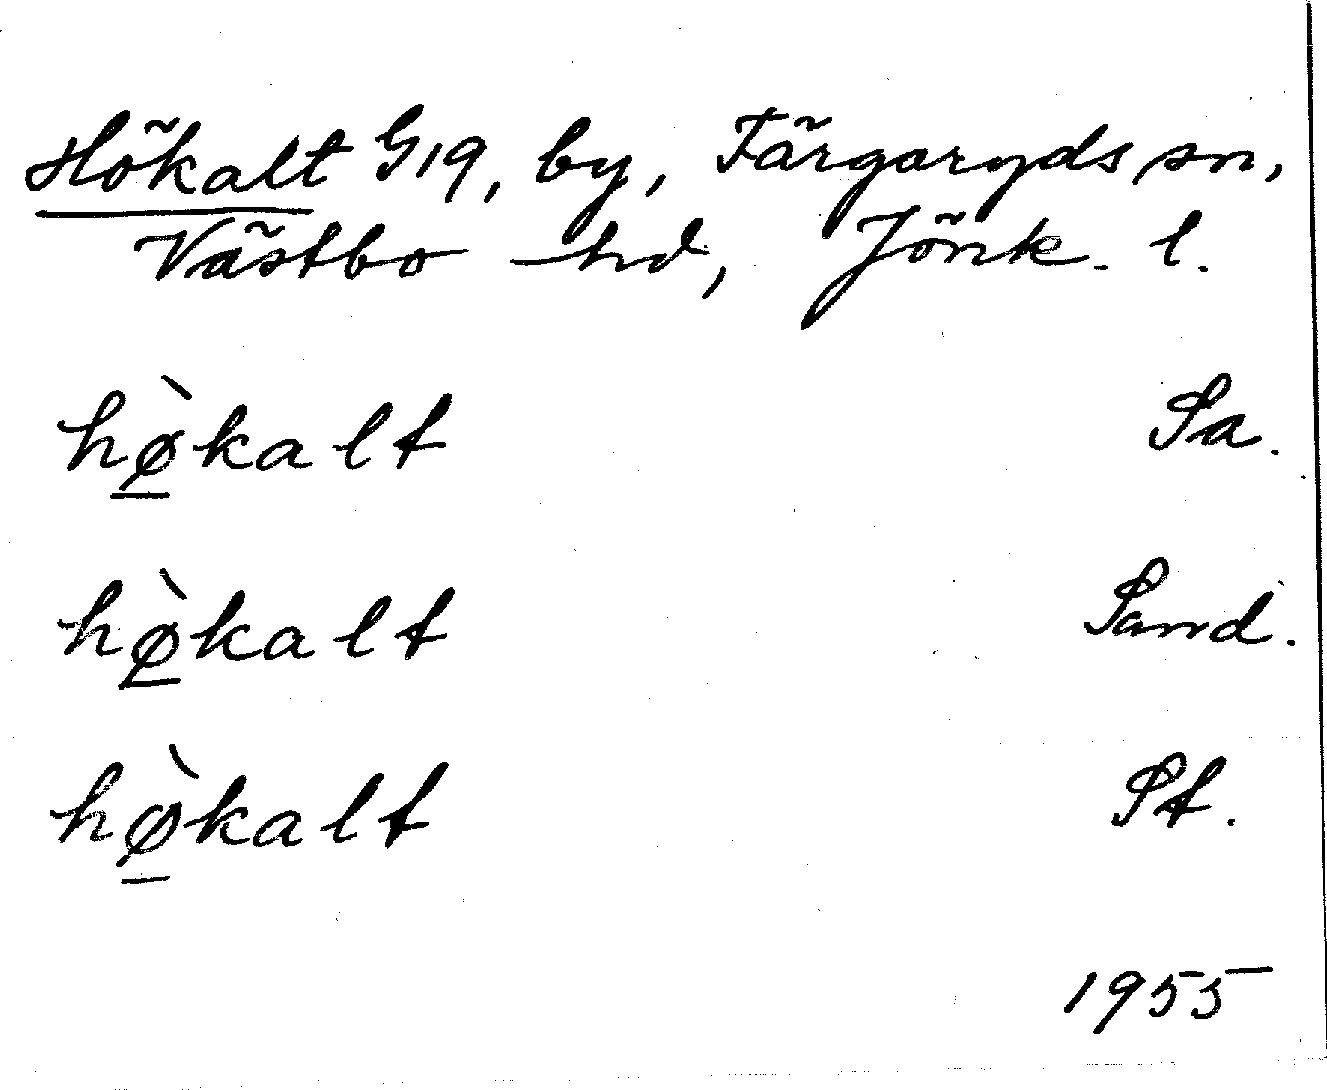 Hökalt G19, by, Färgaryds sn,
Västbo hd, Jönk. l.
hø̱̀kalt Sa.
hø̱̀kalt Sand.
hø̱̀kalt St.
1955